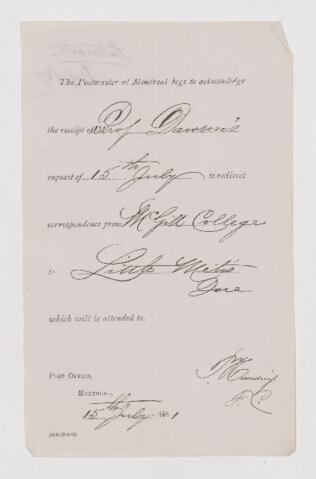 The Postmaster at Montreal begs to acknowledge
the receipt of Prof Dawson's
request of 15th July to redirect
correspondence from McGill College
to Little Metis
Que
which will be attended to.
POST OFFICE,
MONTREAL,
15th July 1881